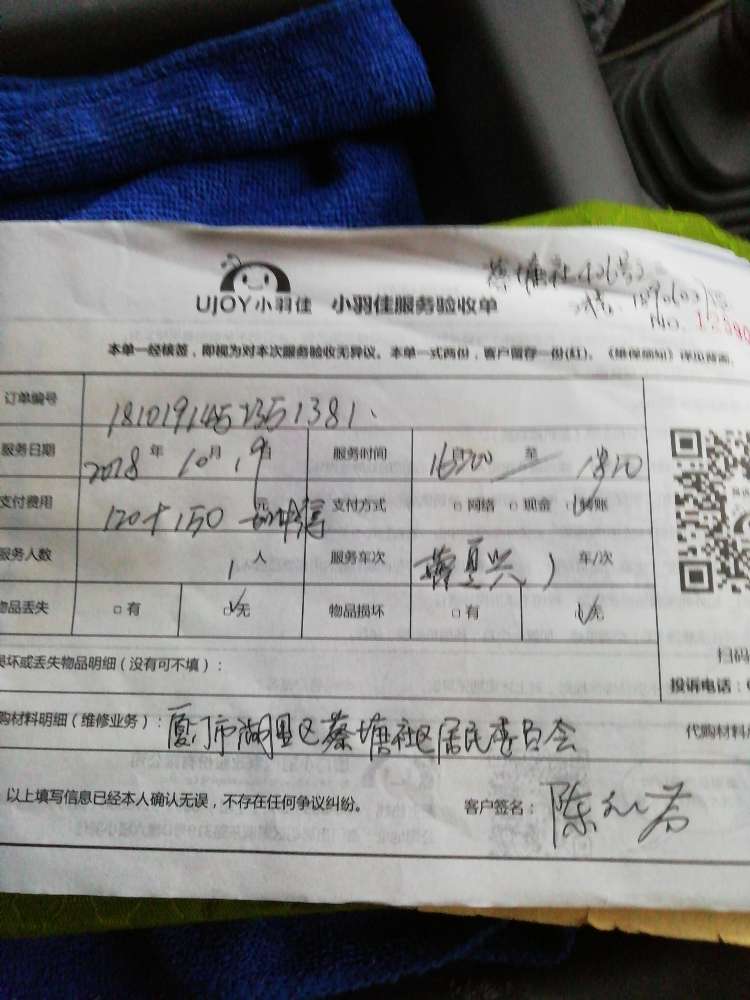 UJOY小羽佳 小羽佳服务验收单
NO.
本单一经核签，即视为对本次服务验收无异议。本单一式两份，客户留存一份(红)。《维保须知》详见背面。
订单编号
服务日期 2018年10月19日 服务时间 16:00 至 1810
支付费用 120+150 元 支付方式 □网络 □现金 ☑转账
服务人数 1人 服务车次 1车/次
物品丢失 □有 ☑无 物品损坏 □有 ☑无
损坏或丢失物品明细（没有可不填）：
扫码
投诉电话：
购材料明细（维修业务）：厦门市湖里区蔡塘社区居民委员会
代购材料
以上填写信息已经本人确认无误，不存在任何争议纠纷。
客户签名：陈